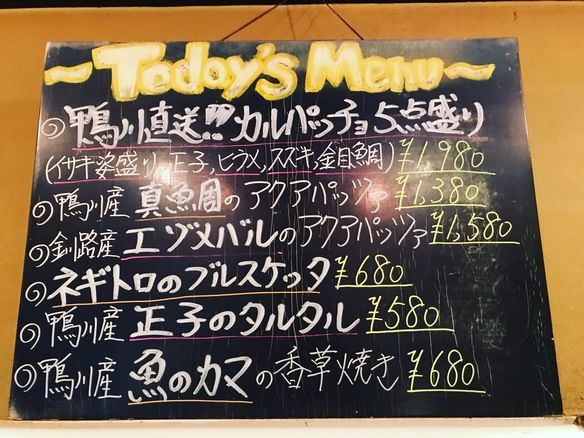 ~Today's Menu~
鴨川直送!! カルパッチョ5点盛り
(イサキ姿盛り, 正子, ヒラメ, スズキ, 金目鯛) ¥1,980
鴨川産 真魚周のアクアパッツァ ¥1,380
釧路産 エゾメバルのアクアパッツァ ¥1,580
ネギトロのブルスケッタ ¥680
鴨川産 正子のタルタル ¥580
鴨川産 魚のカマの香草焼き ¥680